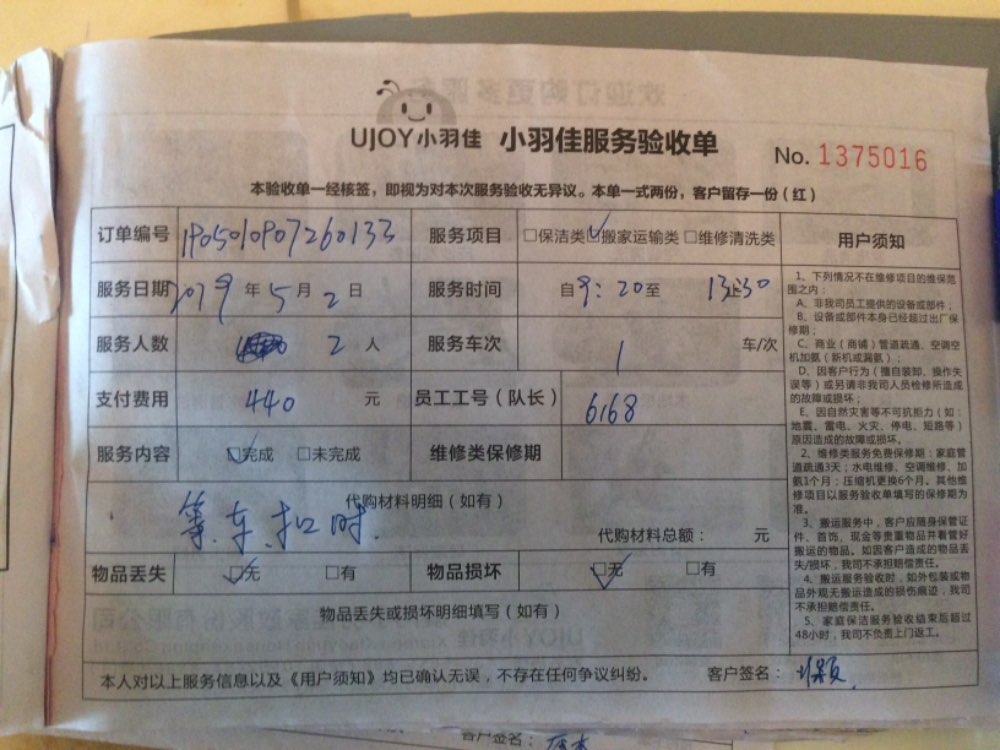 UJOY小羽佳 小羽佳服务验收单
No. 1375016
本验收单一经核签，即视为对本次服务验收无异议。本单一式两份，客户留存一份（红）
订单编号 190501090726013 服务项目 □保洁类 ☑搬家运输类 □维修清洗类
服务日期 2019 年 5 月 2 日 服务时间 自 9:20 至 13:30
服务人数 2 人 服务车次 1 车/次
支付费用 440 元 员工工号（队长） 6168
服务内容 ☑完成 □未完成 维修类保修期
代购材料明细（如有）
等.车.扣时.
代购材料总额： 元
物品丢失 ☑无 □有 物品损坏 ☑无 □有
物品丢失或损坏明细填写（如有）
本人对以上服务信息以及《用户须知》均已确认无误，不存在任何争议纠纷。 客户签名：
用户须知
1、下列情况不在维修项目的维保范
围之内：
A、非我司员工提供的设备或部件；
B、设备或部件本身已经超过出厂保
修期；
C、商业（商铺）管道疏通、空调空
机加氨（新机或漏氨）；
D、因客户行为（擅自装卸、操作失
误等）或另请非我司人员检修所造成
的故障或损坏；
E、因自然灾害等不可抗拒力（如：
地震、雷电、火灾、停电、短路等）
原因造成的故障或损坏。
2、维修类服务免费保修期：家庭管
道疏通3天；水电维修、空调维修、加
氨1个月；压缩机更换6个月。其他维
修项目以服务验收单填写的保修期为
准。
3、搬运服务中，客户应随身保管证
件、首饰，现金等贵重物品并看管好
搬运的物品。如因客户造成的物品丢
失/损坏，我司不承担赔偿责任。
4、搬运服务验收时，如外包装或物
品外观无搬运造成的损伤痕迹，我司
不承担赔偿责任。
5、家庭保洁服务验收结束后超过
48小时，我司不负责上门返工。
客户签名：